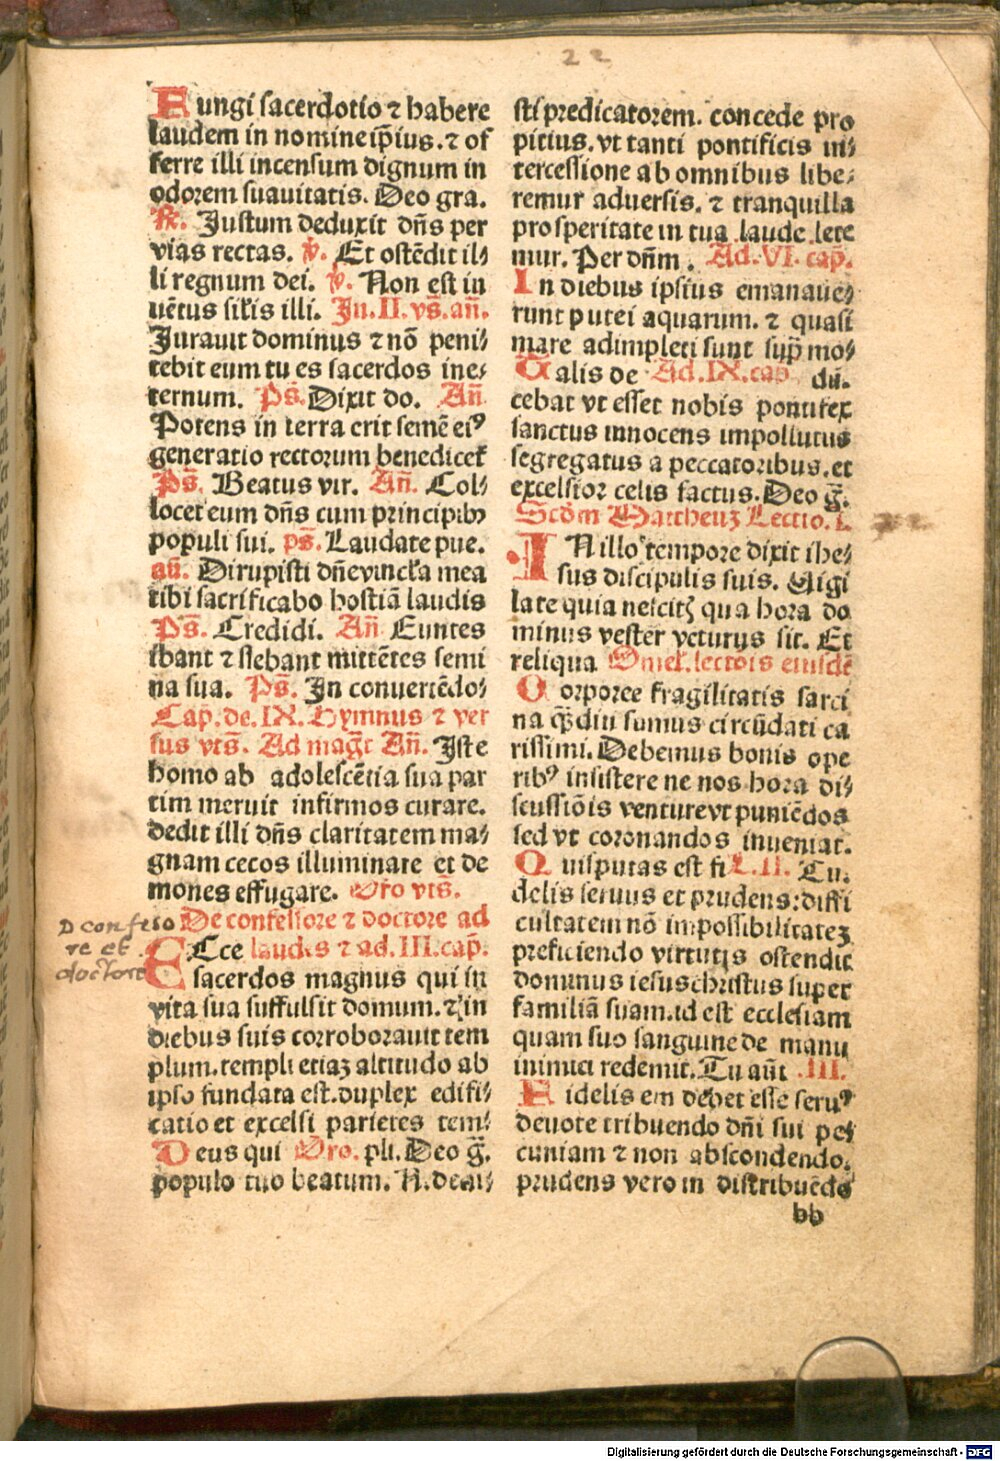 22
Fungi sacerdotio ⁊ habere
laudem in nomine ip̄ius. ⁊ of
ferre illi incensum dignum in
odorem suauitatis. Deo gra.
℟. Justum deduxit dn̄s per
vias rectas. ℣. Et ostēdit il⸗
li regnum dei. ℣. Non est in
uētus sil̄is illi. In. II. vs̄. an̄.
Jurauit dominus ⁊ nō peni⸗
tebit eum tu es sacerdos ine⸗
ternum. Ps̄. Dixit do. An̄
Potens in terra erit semē eiꝰ
generatio rectorum benedicet̄
Ps̄. Beatus vir. An̄. Col⸗
locet eum dn̄s cum principibꝫ
populi sui. ps̄. Laudate pue.
an̄. Dirupisti dn̄e vincl̄a mea
tibi sacrificabo hostiā laudis
Ps̄. Credidi. An̄ Euntes
ibant ⁊ flebant mittētes semi
na sua. Ps̄. In conuertēdo⸗
Cap̄. de. IX. Hymnus ⁊ ver
sus vts̄. Ad maḡt An̄. Iste
homo ab adolescētia sua par
tim meruit infirmos curare.
dedit illi dn̄s claritatem ma⸗
gnam cecos illuminare et de
mones effugare. Or̄o vts̄.
De confessore ⁊ doctore ad
Ecce laudes ⁊ ad. III. cap̄.
sacerdos magnus qui in
vita sua suffulsit domum. ⁊ in
diebus suis corroborauit tem
plum. templi etiaꝫ altitudo ab
ipso fundata est. duplex edifi⸗
catio et excelsi parietes tem⸗
Deus qui Oro. pli. Deo ḡ.
populo tuo beatum. N. deui⸗
D confesso
re et
doctore
sti predicatorem. concede pro
pitius. vt tanti pontificis in⸗
tercessione ab omnibus libe⸗
remur aduersis. ⁊ tranquilla
prosperitate in tua laude lete
mur. Per dn̄m. Ad. VI. cap̄.
In diebus ipsius emanaue⸗
runt putei aquarum. ⁊ quasi
mare adimpleti sunt sup̄ mo⸗
Talis de Ad. IX. cap dū.
cebat vt esset nobis pontifex
sanctus innocens impollutus
segregatus a peccatoribus. et
excelsior celis factus. Deo ḡ.
Scd̄m Mattheuꝫ Lectio. I.
IN illo tempore dixit ihe⸗
sus discipulis suis. Uigi
late quia nescitꝭ qua hora do
minus vester venturus sit. Et
reliqua Omel̄. lectōis eiusdē
Corporee fragilitatis sarci
na qp̄diu sumus circūdati ca
rissimi. Debemus bonis ope
ribꝰ insistere ne nos hora di⸗
scussiōis venture vt puniēdos
sed vt coronandos inueniat.
Quis putas est fi L. II. Tu.
delis seruus et prudens: diffi
cultatem nō impossibilitateꝫ
preficiendo virtutis ostendit
dominus iesus christus super
familiā suam. id est ecclesiam
quam suo sanguine de manu
inimici redemit. Tu aūt .III.
Fidelis em debet esse seruꝰ
deuote tribuendo dn̄i sui pe⸗
cuniam ⁊ non abscondendo.
prudens vero in distribuēdo
bb
Digitalisierung gefördert durch die Deutsche Forschungsgemeinschaft - DFG